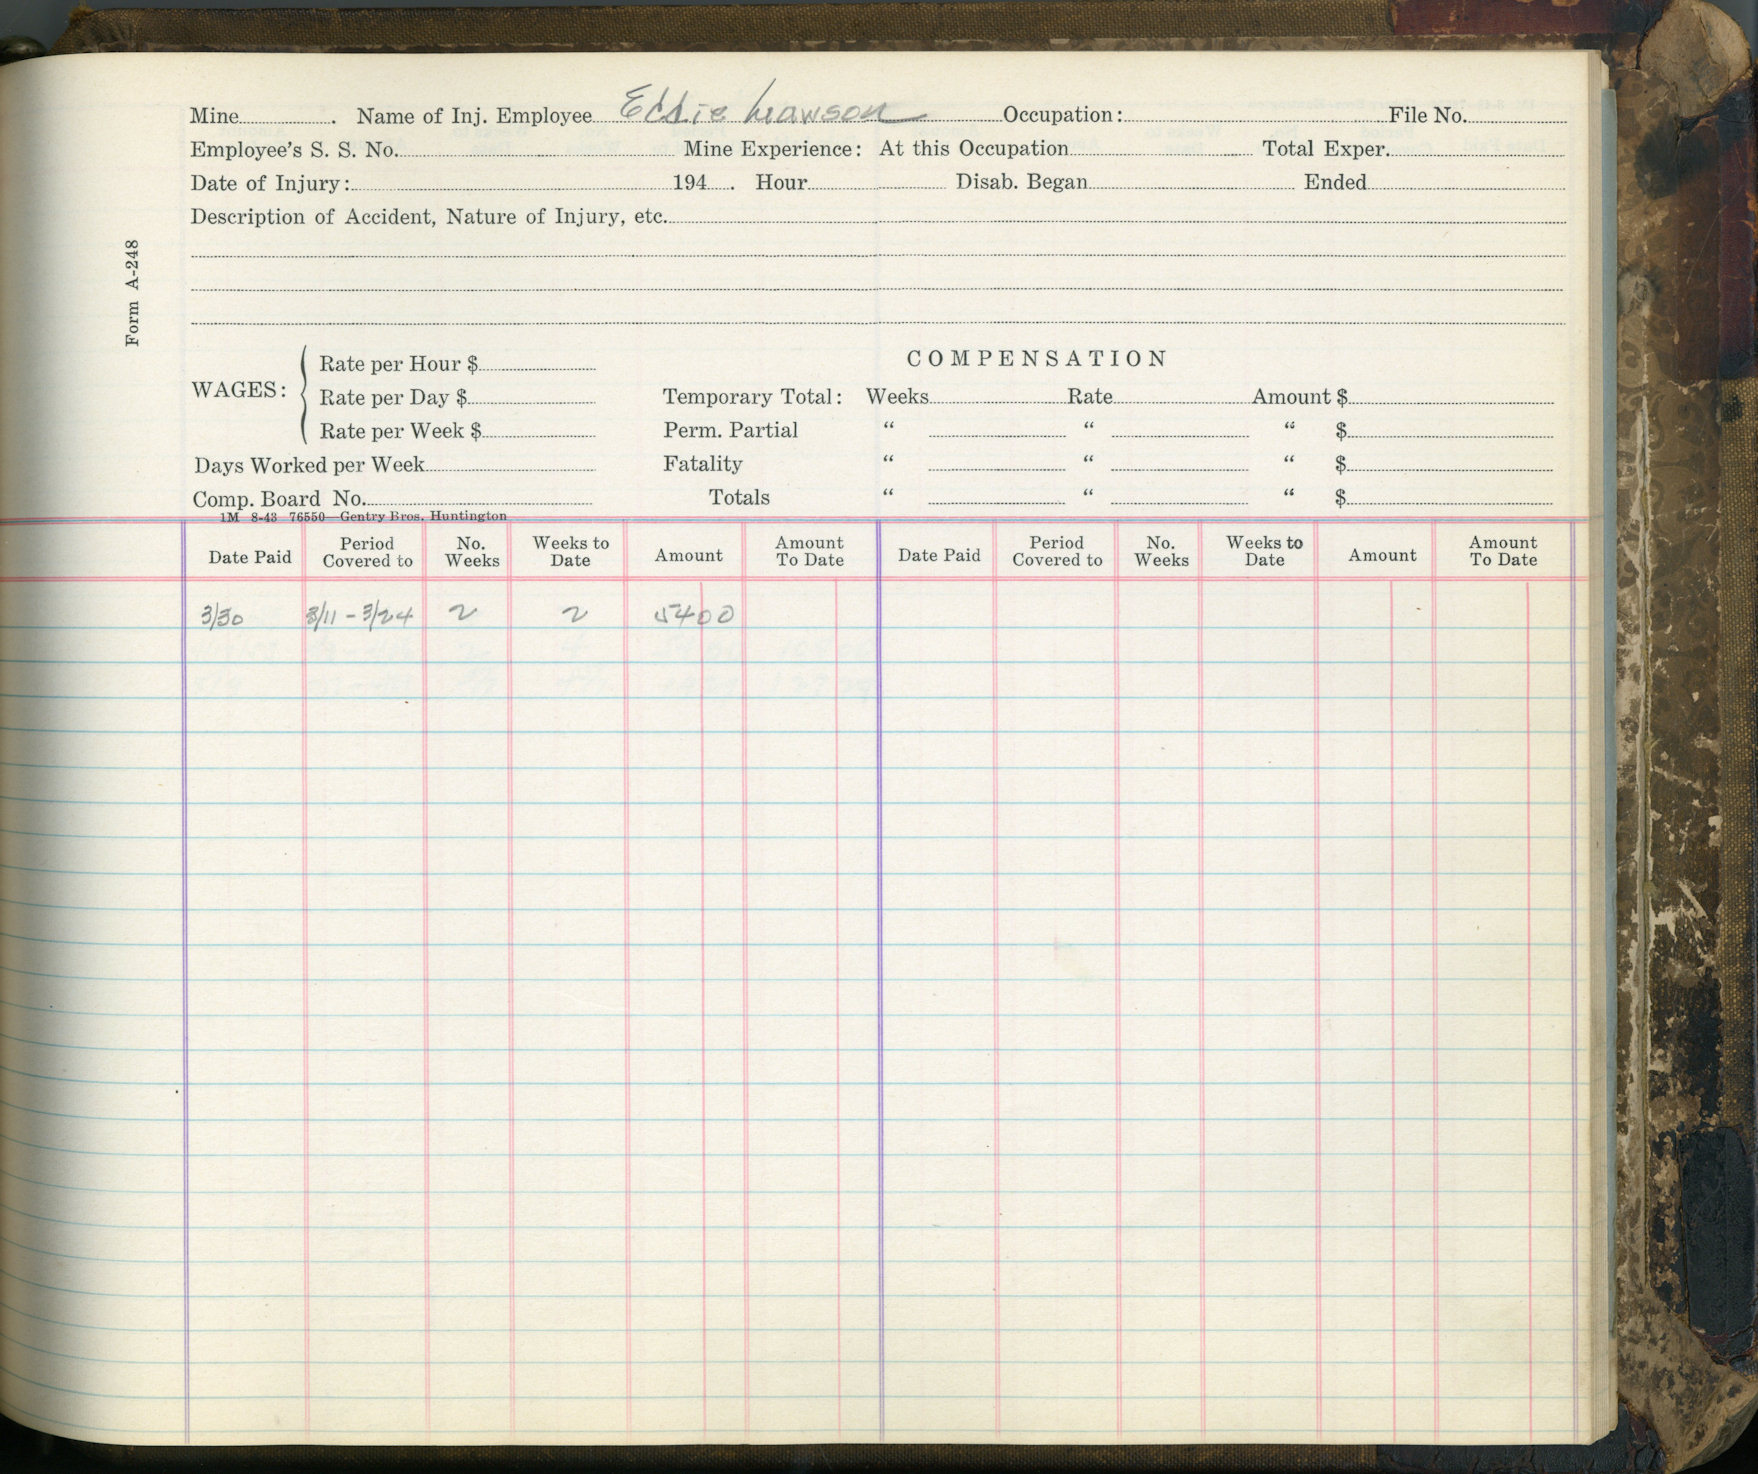 Mine . Name of Inj. Employee Eddie Lawson Occupation: File No.
Employee's S. S. No. Mine Experience: At this Occupation Total Exper.
Date of Injury: 194 . Hour Disab. Began Ended
Description of Accident, Nature of Injury, etc.
Form A-248
COMPENSATION
WAGES: Rate per Hour $
Rate per Day $ Temporary Total: Weeks Rate Amount $
Rate per Week $ Perm. Partial " " " $
Days Worked per Week Fatality " " " $
Comp. Board No. Totals " " " $
1M 8-43 76550—Gentry Bros. Huntington
Date Paid Period Covered to No. Weeks Weeks to Date Amount Amount To Date Date Paid Period Covered to No. Weeks Weeks to Date Amount Amount To Date
3/30 3/11 - 3/24 2 2 54 00